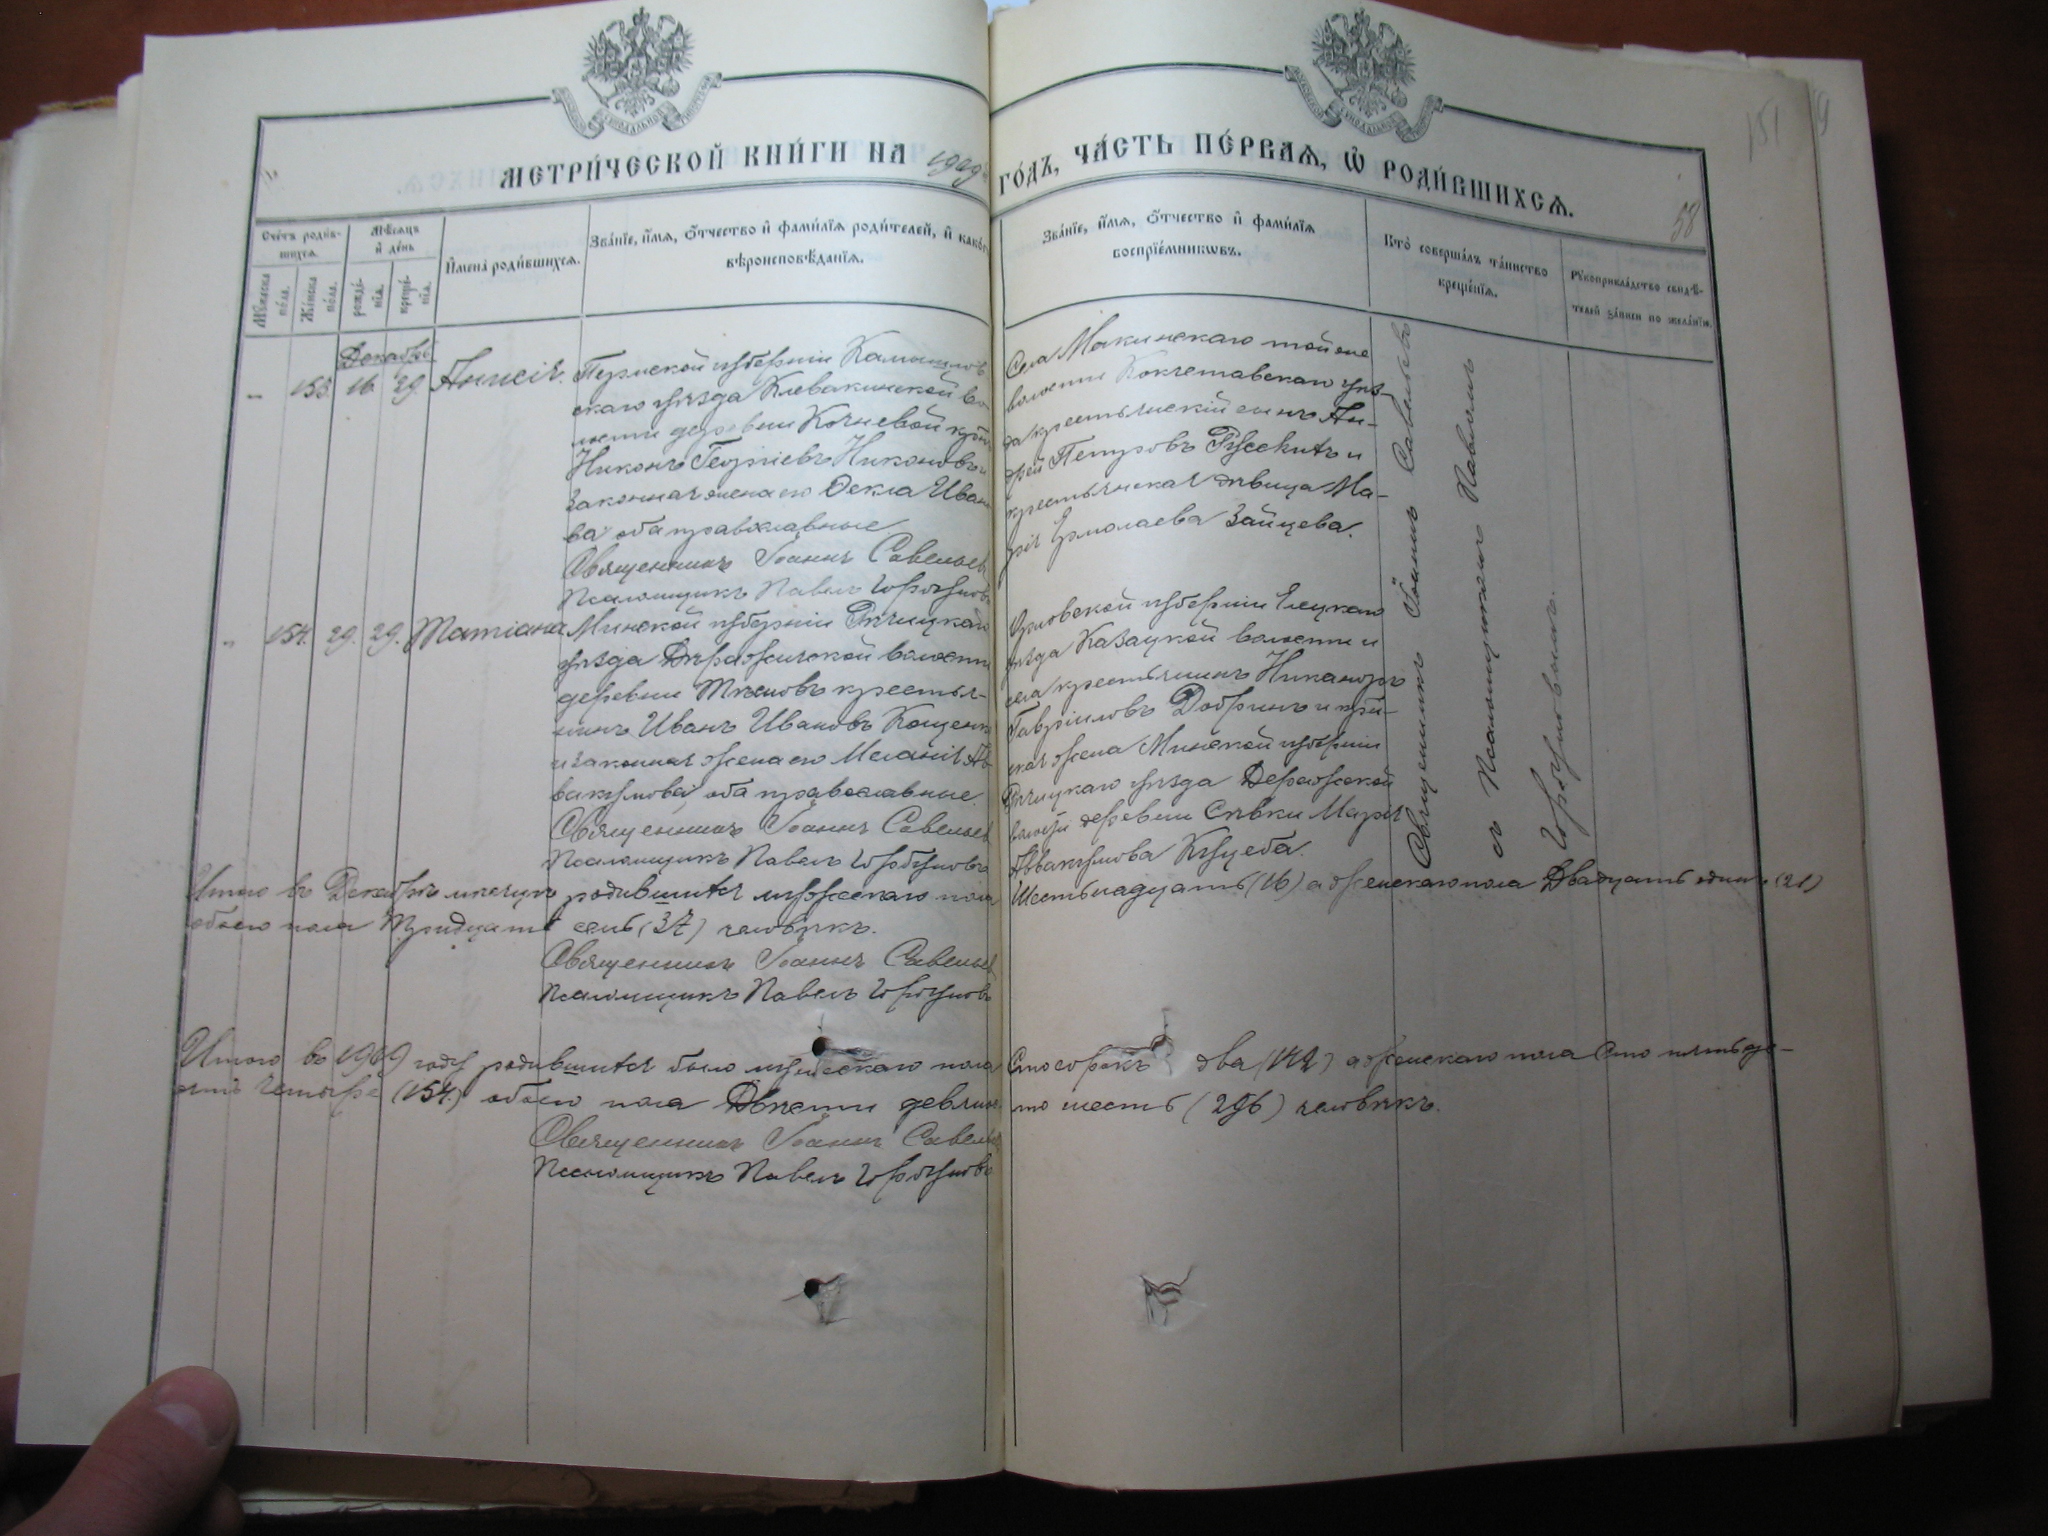 МЕТРИ́ЧЕСКОЙ КНИ́ГИ НА 1909 ГО́ДЪ, ЧА́СТЬ ПЕ́РВАѦ, Ѿ РОДИ́ВШИХСѦ.
151
58
Сче́тъ роди́в-
шихсѧ.
Мꙋ́жеска по́ла.
Же́нска по́ла.
Мѣ́сѧцъ и҆ де́нь
рожде́-
нїѧ.
креще́-
нїѧ.
И҆мена̀ роди́вшихсѧ.
Зва́нїе, и҆́мѧ, ѻ҆́тчество и҆ фами́лїѧ роди́телей, и҆ како́гѡ
вѣроисповѣ́данїѧ.
Зва́нїе, и҆́мѧ, ѻ҆́тчество и҆ фами́лїѧ
воспрїе́мникѡвъ.
Кто̀ соверша́лъ та́инство
креще́нїѧ.
Рꙋкоприкла́дство свидѣ́-
телей за́писи по жела́нїю.
Декабрь
„ 153. 16. 29. Анисія.
Пермской губерніи Камышлов
скаго уѣзда Клевакинской во-
лости деревни Кочневой крест
Никонъ Георгіевъ Никоновъ и
законная жена его Ѳекла Ивано
ва оба православные
Священникъ Іоаннъ Савельев
Псаломщикъ Павелъ Горбуновъ
Села Макинскаго той же
волости Кокчетавскаго уѣз-
да крестьянскій сынъ Ан-
дрей Петровъ и
крестьянская дѣвица Ма-
рія Ермолаева Зайцева.
„ 154. 29. 29. Татіана
Минской губерніи Рѣчицкаго
уѣзда Деражичской волости
деревни крестья-
нинъ Иванъ Ивановъ
и законная жена его Меланія Ав
вакумова, оба православные.
Священникъ Іоаннъ Савельев
Псаломщикъ Павелъ Горбуновъ
Орловской губерніи Елецкаго
уѣзда Казацкой волости и
села крестьянинъ Никаноръ
Гавріиловъ Добринъ и
жена Минской губерніи
Рѣчицкаго уѣзда
волости деревни Марія
Аввакумова
Священникъ Іоаннъ Савельевъ
съ Псаломщикомъ Павломъ
Горбуновымъ.
Итого въ Декабрѣ мѣсяцѣ родившихся мужескаго пола Шестьнадцать (16) а женскаго пола Двадцать одинъ (21)
обоего пола Тридцать семь (37) человѣкъ.
Священникъ Іоаннъ Савельев
Псаломщикъ Павелъ Горбуновъ
Итого въ 1909 году родившихся было мужескаго пола Сто сорокъ два (142) а женскаго пола Сто пятьде-
сятъ четыре (154) обоего пола Двѣсти девяно сто шесть (296) человѣкъ.
Священникъ Іоаннъ Савельев
Псаломщикъ Павелъ Горбуновъ